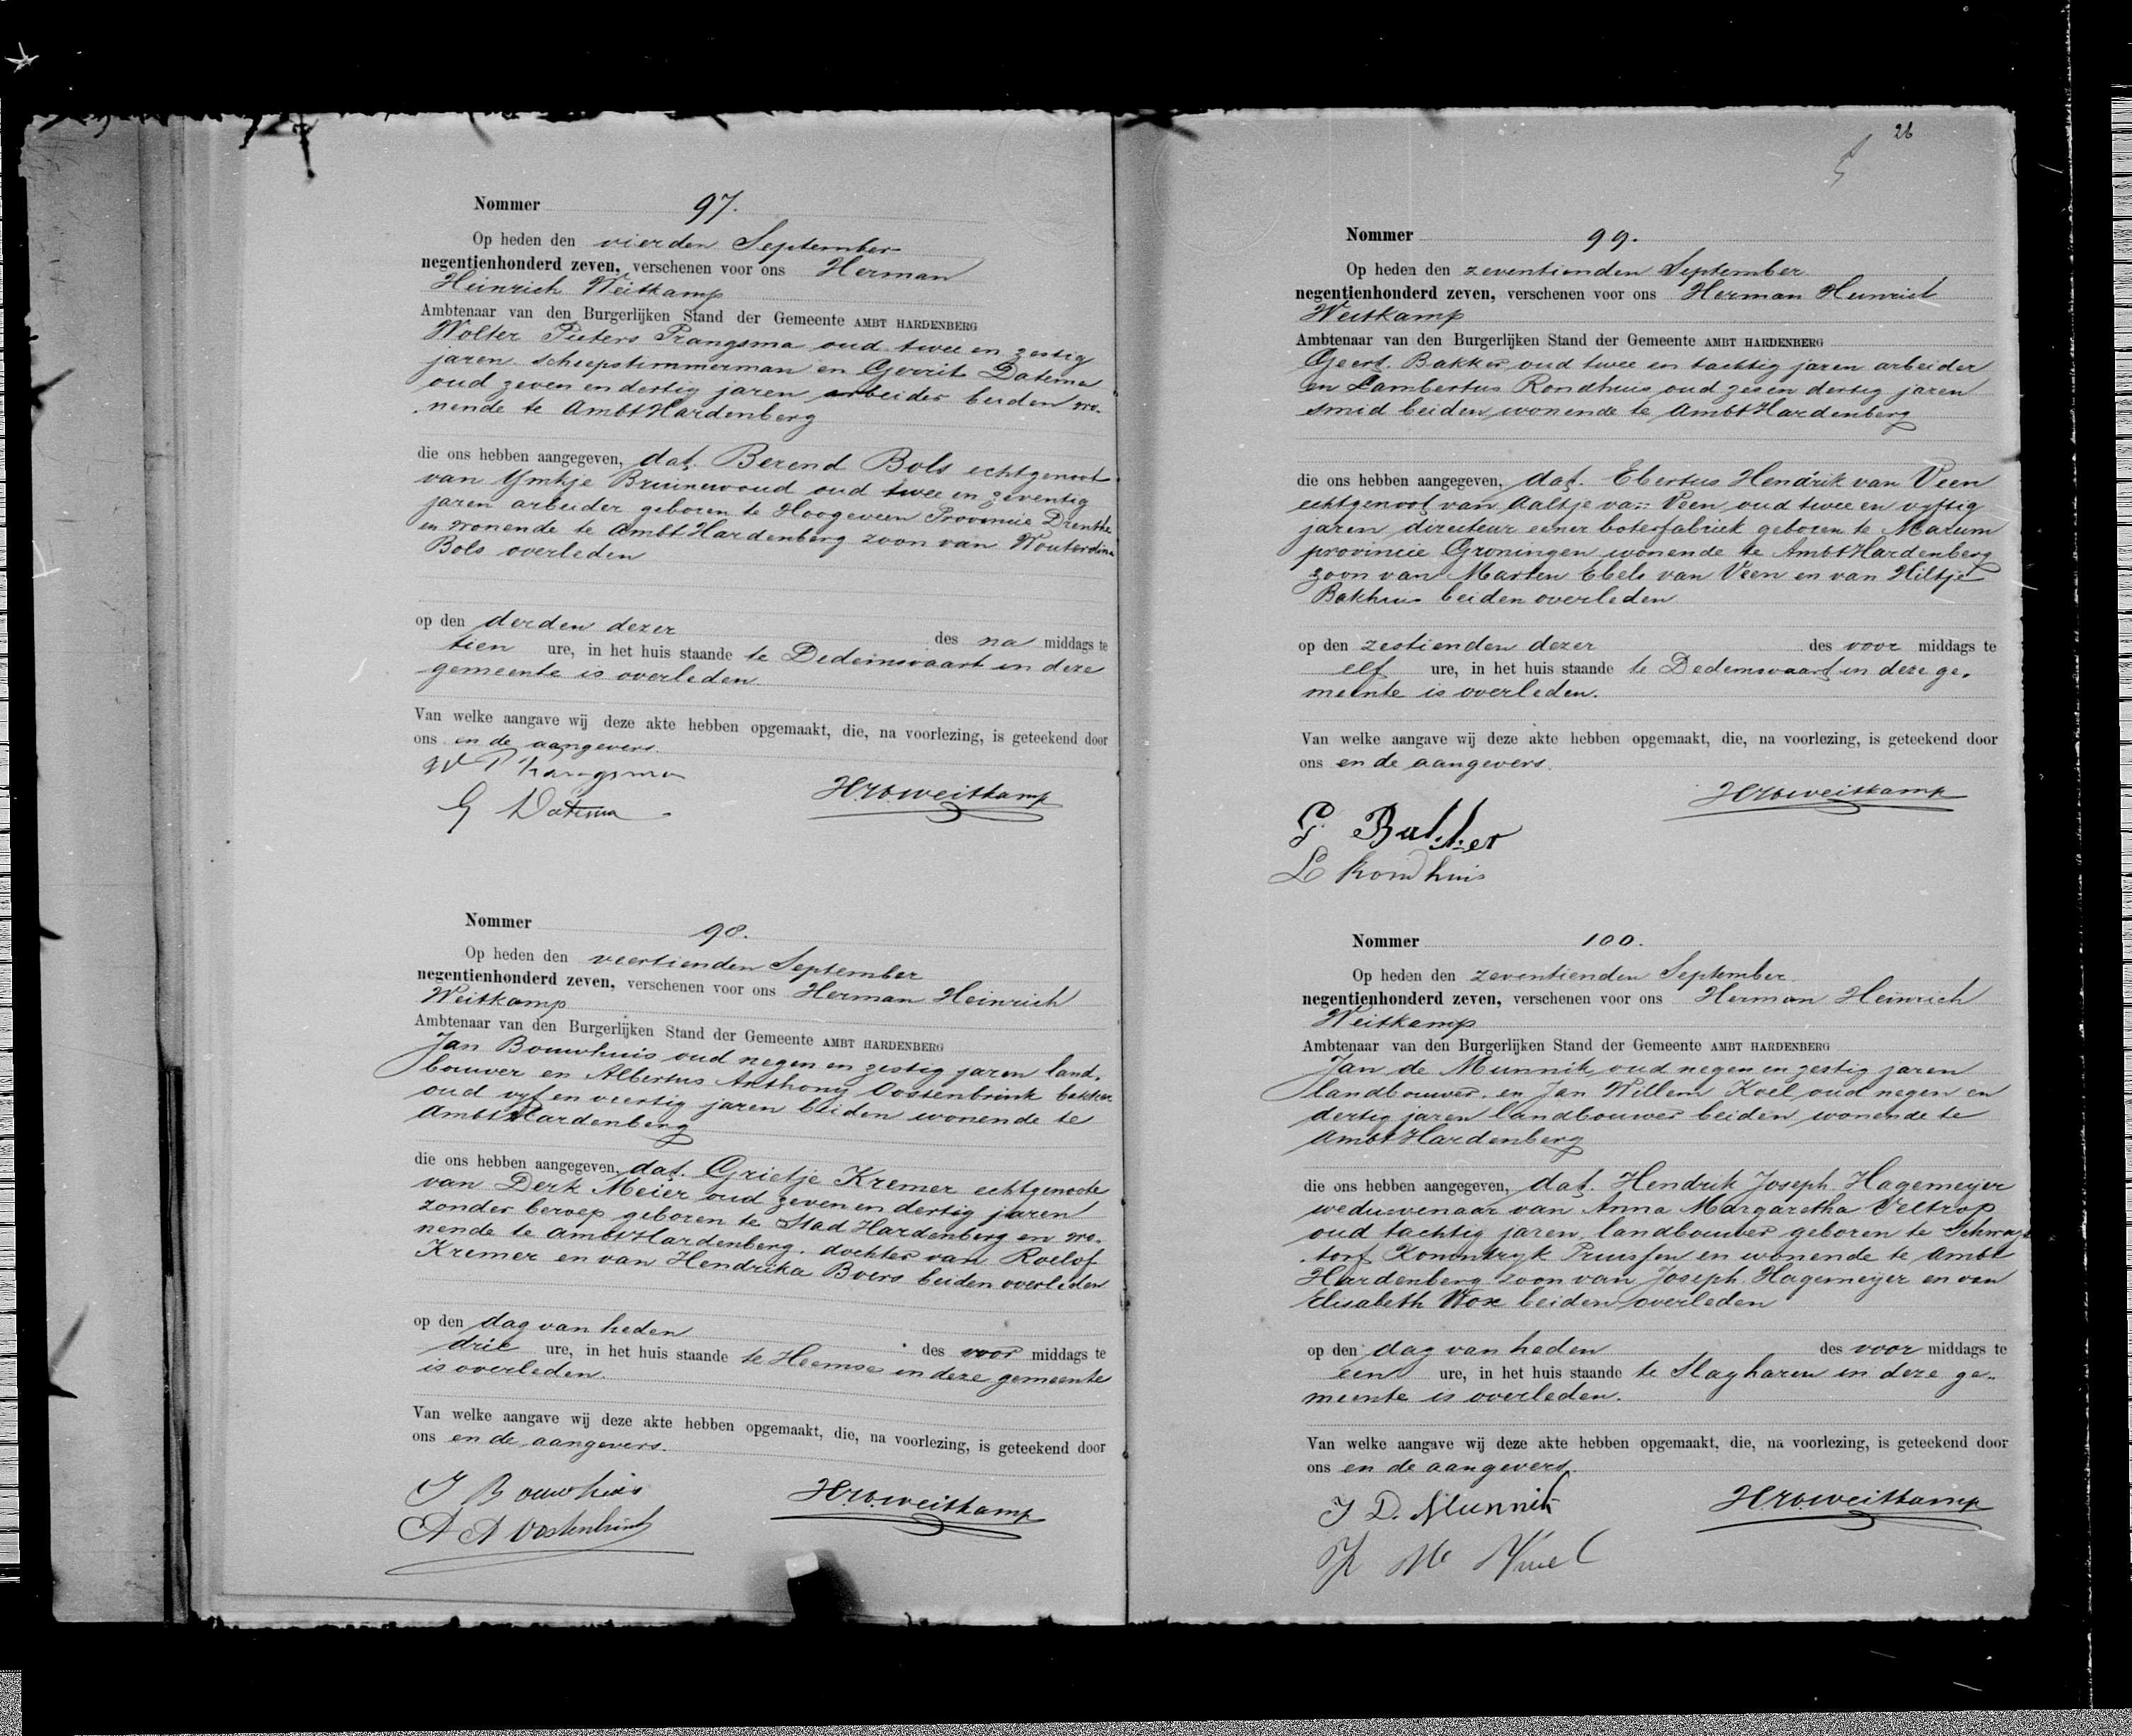 Nommer 97.
Op heden den vierden September
negentienhonderd zeven, verschenen voor ons Herman
Heinrich Weitkamp
Ambtenaar van den Burgerlijken Stand der Gemeente AMBT HARDENBERG
Wolter Pieters Prangsma oud twee en zestig
jaren scheepstimmerman en Gerrit Datema
oud zeven en dertig jaren arbeider beiden wo-
nende te Ambt Hardenberg
die ons hebben aangegeven, dat Berend Bols echtgenoot
van Ymkje Bruinewoud oud twee en zeventig
jaren arbeider geboren te Hoogeveen Provincie Drenthe
en wonende te Ambt Hardenberg zoon van Wouterdina
Bols overleden
op den derden dezer des na middags te
tien ure, in het huis staande te Dedemsvaart in deze
gemeente is overleden.
Van welke aangave wij deze akte hebben opgemaakt, die, na voorlezing, is geteekend door
ons en de aangevers.
W P Prangsma
G Datema
HHWeitkamp
Nommer 98.
Op heden den veertienden September
negentienhonderd zeven, verschenen voor ons Herman Heinrich
Weitkamp
Ambtenaar van den Burgerlijken Stand der Gemeente AMBT HARDENBERG
Jan Bouwhuis oud negen en zestig jaren land-
bouwer en Albertus Anthony Oostenbrink bakker
oud vyf en veertig jaren beiden wonende te
Ambt Hardenberg
die ons hebben aangegeven, dat Grietje Kremer echtgenoote
van Derk Meier oud zeven en dertig jaren
zonder beroep geboren te Stad Hardenberg en wo-
nende te Ambt Hardenberg dochter van Roelof
Kremer en van Hendrika Boers beiden overleden
op den dag van heden des voor middags te
drie ure, in het huis staande te Heemse in deze gemeente
is overleden.
Van welke aangave wij deze akte hebben opgemaakt, die, na voorlezing, is geteekend door
ons en de aangevers.
J Bouwhuis
A A Oostenbrink
HHWeitkamp
26
Nommer 99.
Op heden den zeventienden September
negentienhonderd zeven, verschenen voor ons Herman Heinrich
Weitkamp
Ambtenaar van den Burgerlijken Stand der Gemeente AMBT HARDENBERG
Geert Bakker oud twee en tachtig jaren arbeider
en Lambertus Rondhuis oud zes en dertig jaren
smid beiden wonende te Ambt Hardenberg
die ons hebben aangegeven, dat Ebertus Hendrik van Veen
echtgenoot van Aaltje van Veen oud twee en vyftig
jaren directeur eener boterfabriek geboren te Marum
provincie Groningen wonende te Ambt Hardenberg
zoon van Marten Ebels van Veen en van Hiltje
Bakhuis beiden overleden
op den zestienden dezer des voor middags te
elf ure, in het huis staande te Dedemsvaart in deze ge-
meente is overleden.
Van welke aangave wij deze akte hebben opgemaakt, die, na voorlezing, is geteekend door
ons en de aangevers.
HHWeitkamp
G Bakker
L Rondhuis
Nommer 100.
Op heden den zeventienden September
negentienhonderd zeven, verschenen voor ons Herman Heinrich
Weitkamp
Ambtenaar van den Burgerlijken Stand der Gemeente AMBT HARDENBERG
Jan de Munnik oud negen en zestig jaren
landbouwer en Jan Willem Koel oud negen en
dertig jaren landbouwer beiden wonende te
Ambt Hardenberg
die ons hebben aangegeven, dat Hendrik Joseph Hagemeijer
weduwenaar van Anna Margaretha Veltrop
oud tachtig jaren, landbouwer geboren te
Koninkryk Pruissen en wonende te Ambt
Hardenberg zoon van Joseph Hagemeijer en van
Elisabeth beiden overleden
op den dag van heden des voor middags te
een ure, in het huis staande te Slagharen in deze ge-
meente is overleden.
Van welke aangave wij deze akte hebben opgemaakt, die, na voorlezing, is geteekend door
ons en de aangevers.
J D. Munnik
HHWeitkamp